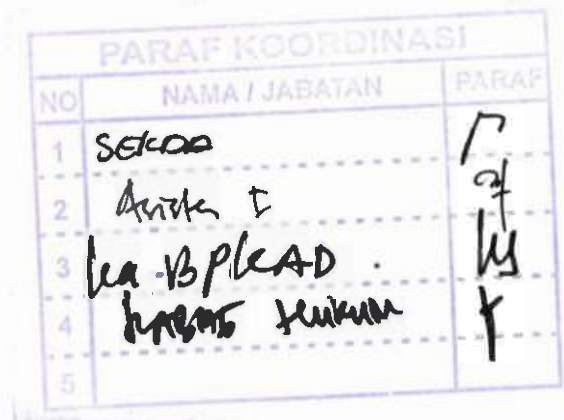 PARAF KOORDINASI
NO NAMA / JABATAN PARAF
1 SEKDA
2 Asisten I
3 Ka BPKAD .
4 KABAG Hukum
5